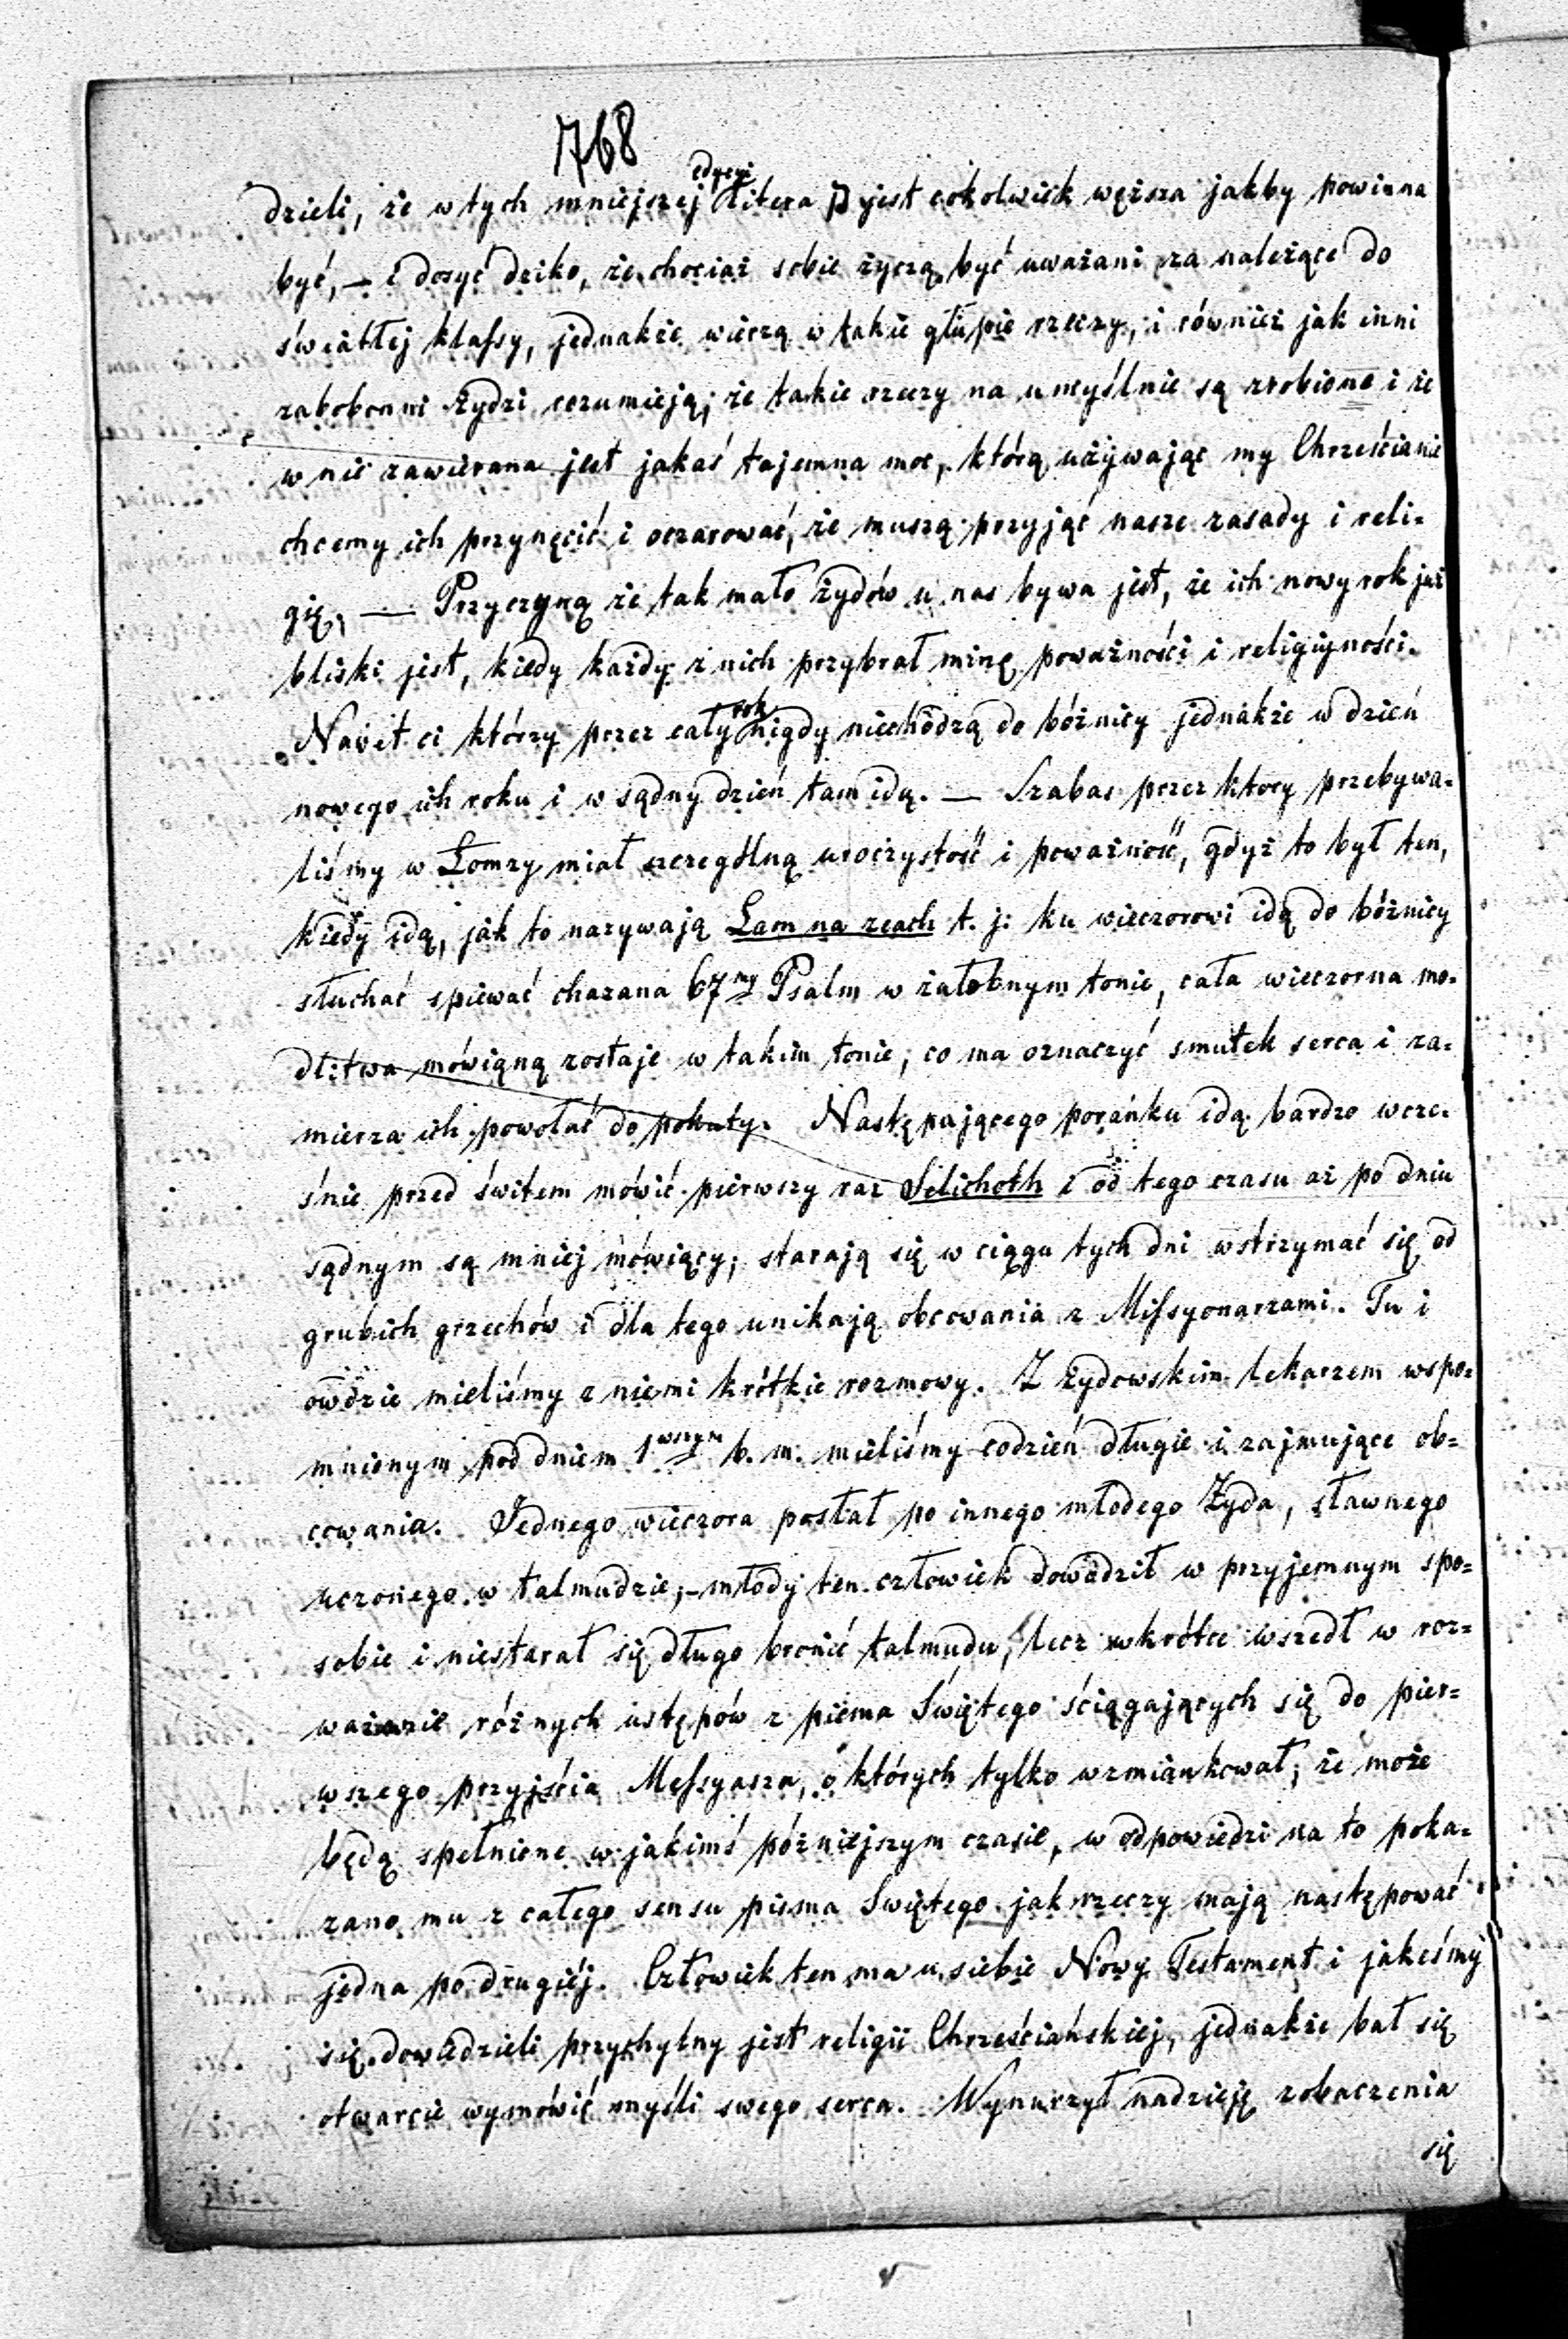 768
edycyi
dzieli, że w tych mniejszej litera ק jest cokolwiek węższa jakby powinna
być, — i dosyć dziko, że chociaż sobie życzą być uważani za należące do
światłej klassy, jednakże wierzą w takie głupie rzeczy, i również jak inni
zabobonni żydzi rozumieją, że takie rzeczy na umyślnie są zrobione i że
w nie zawierana jest jakaś tajemna moc, którą używając my Chrześcianie
chcemy ich przynęcić i oczarować, że muszą przyjąć nasze zasady i reli-
gię, — Przyczyną że tak mało żydów u nas bywa jest, że ich nowy rok już
bliski jest, kiedy każdy z nich przybrał minę poważności i religijności.
rok
Nawet ci którzy przez cały nigdy niechodzą do bóżnicy jednakże w dzień
nowego ich roku i w sądny dzień tam idą. — Szabas przez ktory przebywa-
liśmy w Łomzy miał szczególną uroczystość i poważność, gdyż to był ten,
kiedy idą, jak to nazywają Lam na zeach t. j: ku wieczorowi idą do bóżnicy
słuchać spiewać chazana 67my Psalm w żałobnym tonie, cała wieczorna mo-
dlitwa mówiąną zostaje w takim tonie, co ma oznaczyć smutek serca i za-
mierza ich powołać do pokuty. Następającego poranku idą bardzo wcze-
śnie przed świtem mówić pierwszy raz Selichoth i od tego czasu aż po dniu
sądnym są mniej mówiący; starają się w ciągu tych dni wstrzymać się od
grubich grzechów i dla tego unikają obcowania z Missyonarzami. Tu i
owdzie mieliśmy z niemi krótkie rozmowy. Z żydowskim lekarzem wspo-
mnionym pod dniem 1wszym b. m. mieliśmy codzień długie i zajmujące ob-
cowania. Jednego wieczora posłał po innego młodego Żyda, sławnego
uczonego w talmudzie, — młody ten człowiek dowadził w przyjemnym spo-
sobie i niestarał się długo bronić talmudu, lecz wkrótce wszedł w roz-
ważanie różnych ustępów z pisma Świętego ściągających się do pier-
wszego przyjścia Messyasza, o których tylko wzmiankował, że może
będą spełnione w jakimś pózniejszym czasie, w odpowiedzi na to poka-
zano mu z całego sensu pisma Swiętego jak rzeczy mają następować
jedna po drugiéj. Człowiek ten ma u siebie Nowy Testament i jakeśmy
się dowiedzieli przychylny jest religii Chrześciańskiej, jednakże bał się
otwarcie wymówić myśli swego serca. Wynurzył nadzieję zobaczenia
się